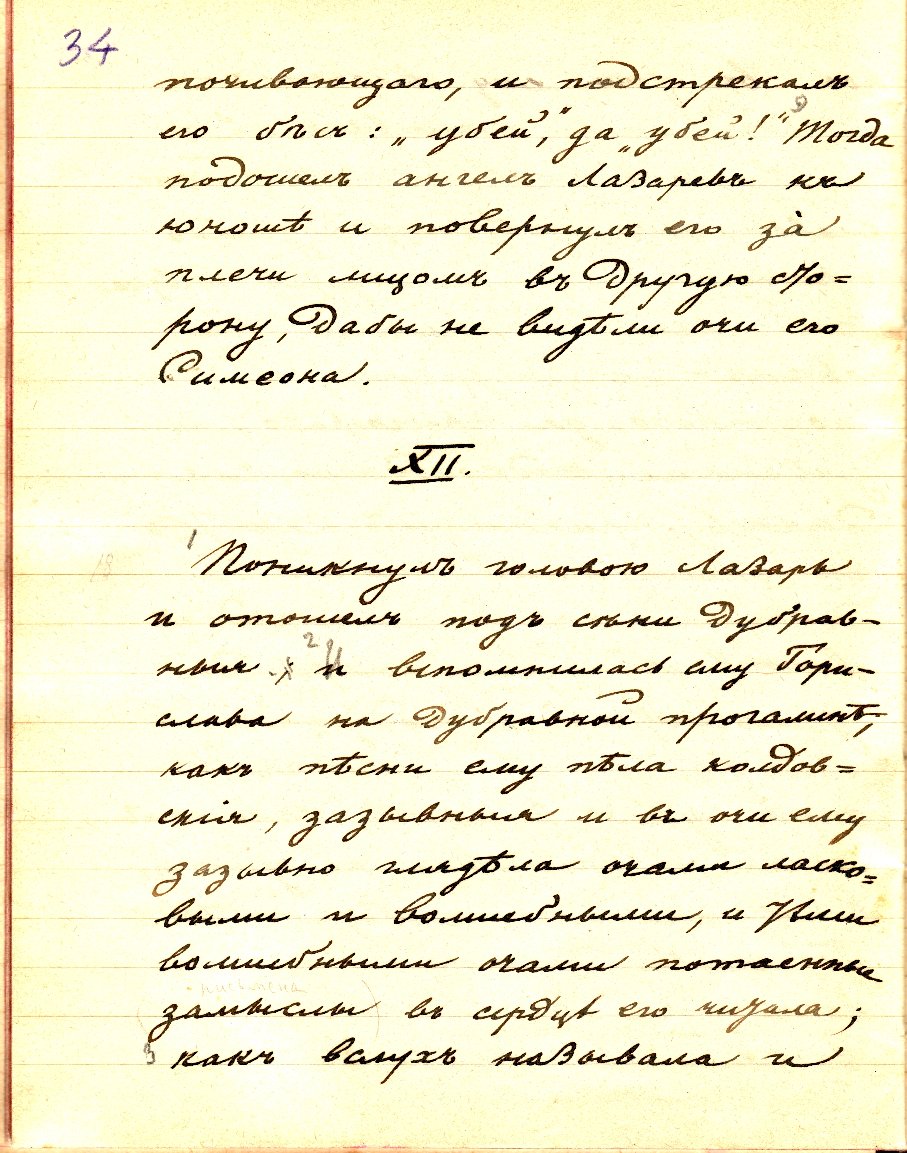 34
почивающаго, и подстрекалъ
его бѣсъ: „убей,“ да „убей!“ 9 Тогда
подошелъ ангелъ Лазаревъ къ
юношѣ и повернулъ его за̀
плечи лицомъ въ другую сто=
рону, дабы не видѣли очи его
Симеона.
XII.
1 Поникнулъ головою Лазарь
и отошелъ подъ сѣни дубрав-
ныя 2 И вспомнилась ему Гори-
слава на дубравной прогалинѣ,
какъ пѣсни ему пѣла колдов=
скія, зазывныя и въ очи ему
зазывно глядѣла очами ласко=
выми и волшебными, и тѣми
волшебными очами потаенные
письмена
замыслы въ сердцѣ его читала;
3 какъ вслухъ называла и